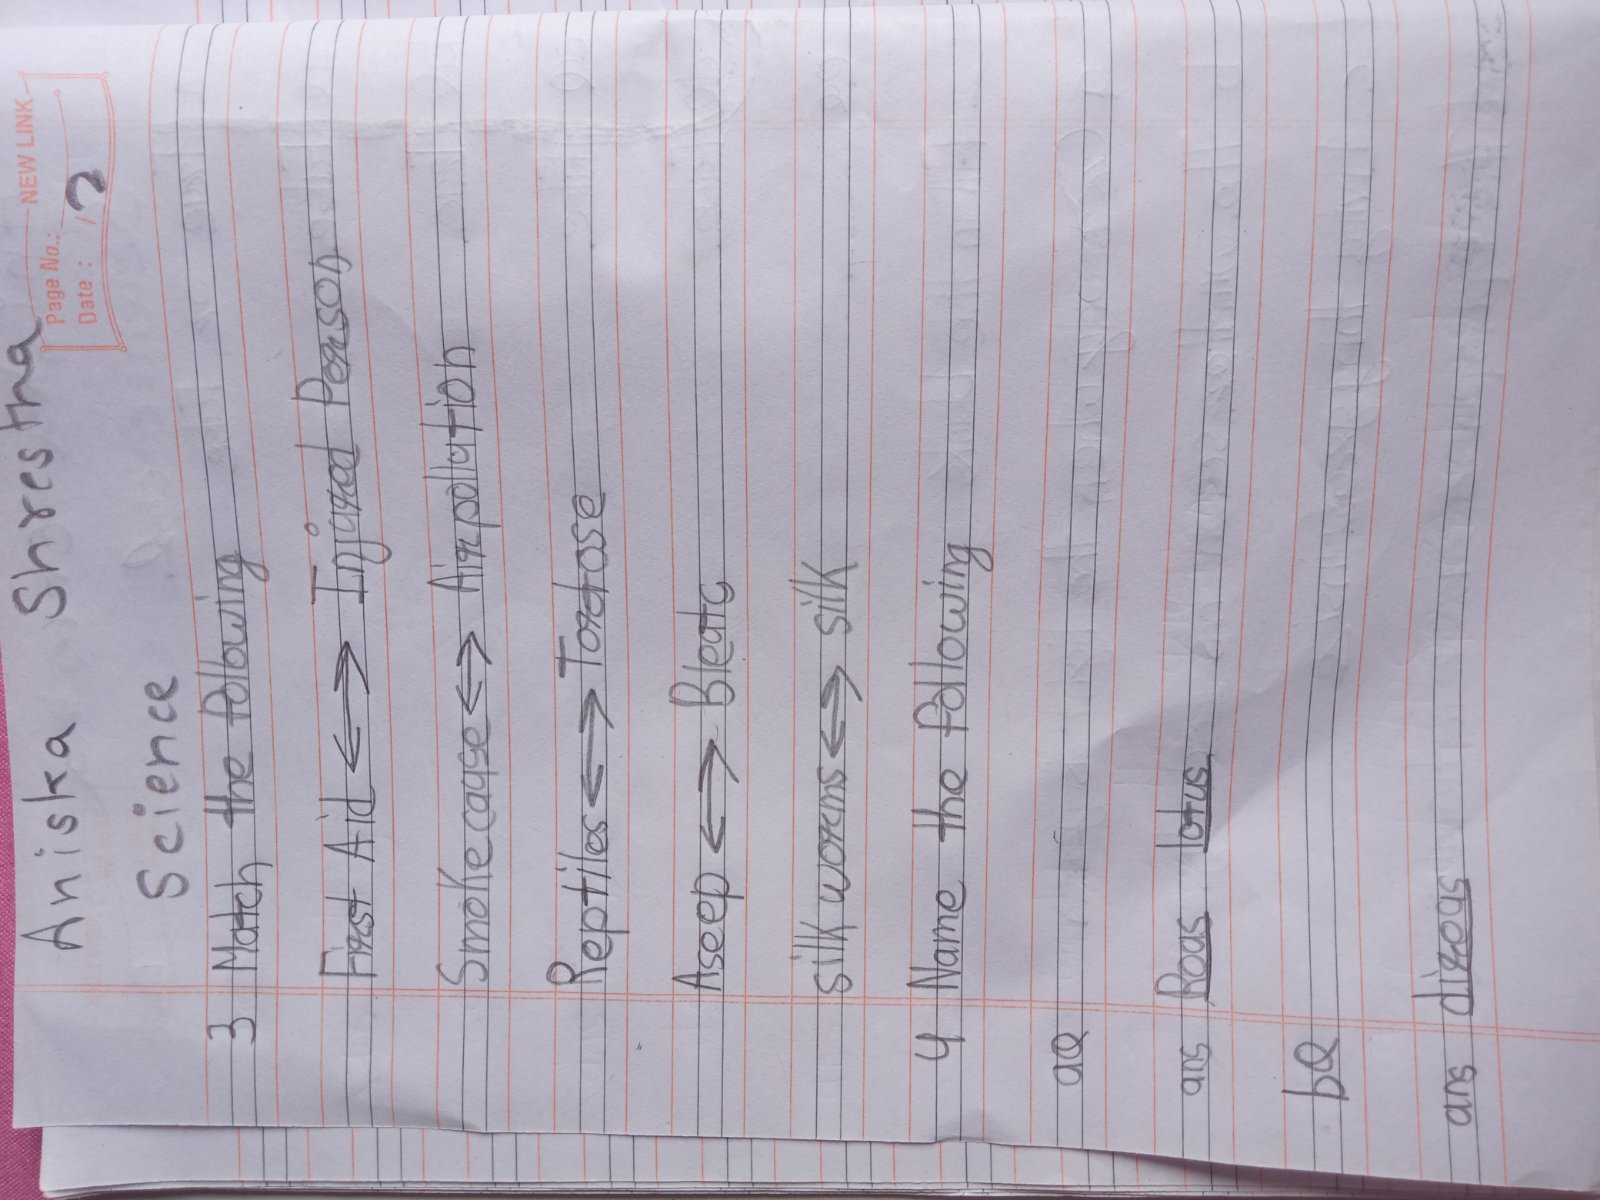 Aniska Shrestha
NEW LINK
Page No.:
Date : / 2
Science
3 Match the following
First Aid ↔ Injured Person
Smoke cause ↔ Air pollution
Reptiles ↔ Tortose
Aseep ↔ Bleats
silk worms ↔ silk
4 Name the following
aQ
ans Roas lotus
bQ
ans dirous